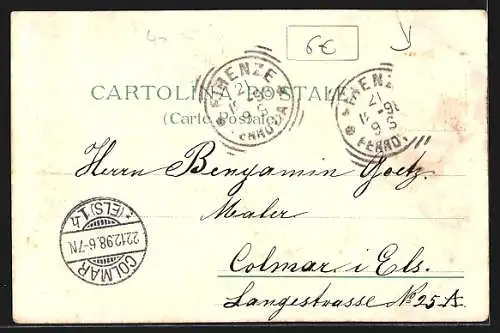 6€
CARTOLINA POSTALE
(Carte Postale)
FIRENZE
FERROVIA
FIRENZE
Herrn Benjamin Goetz.
Maler
Colmar i Els.
Langestrasse No 25 A.
COLMAR
22.12.98.6-7N.
*(ELS) 1 h